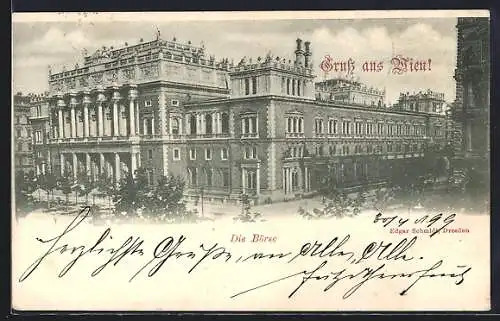 Gruß aus Wien!
Die Börse
Edgar Schmidt, Dresden
Herzlichste Grüße, an Alle, Alle.